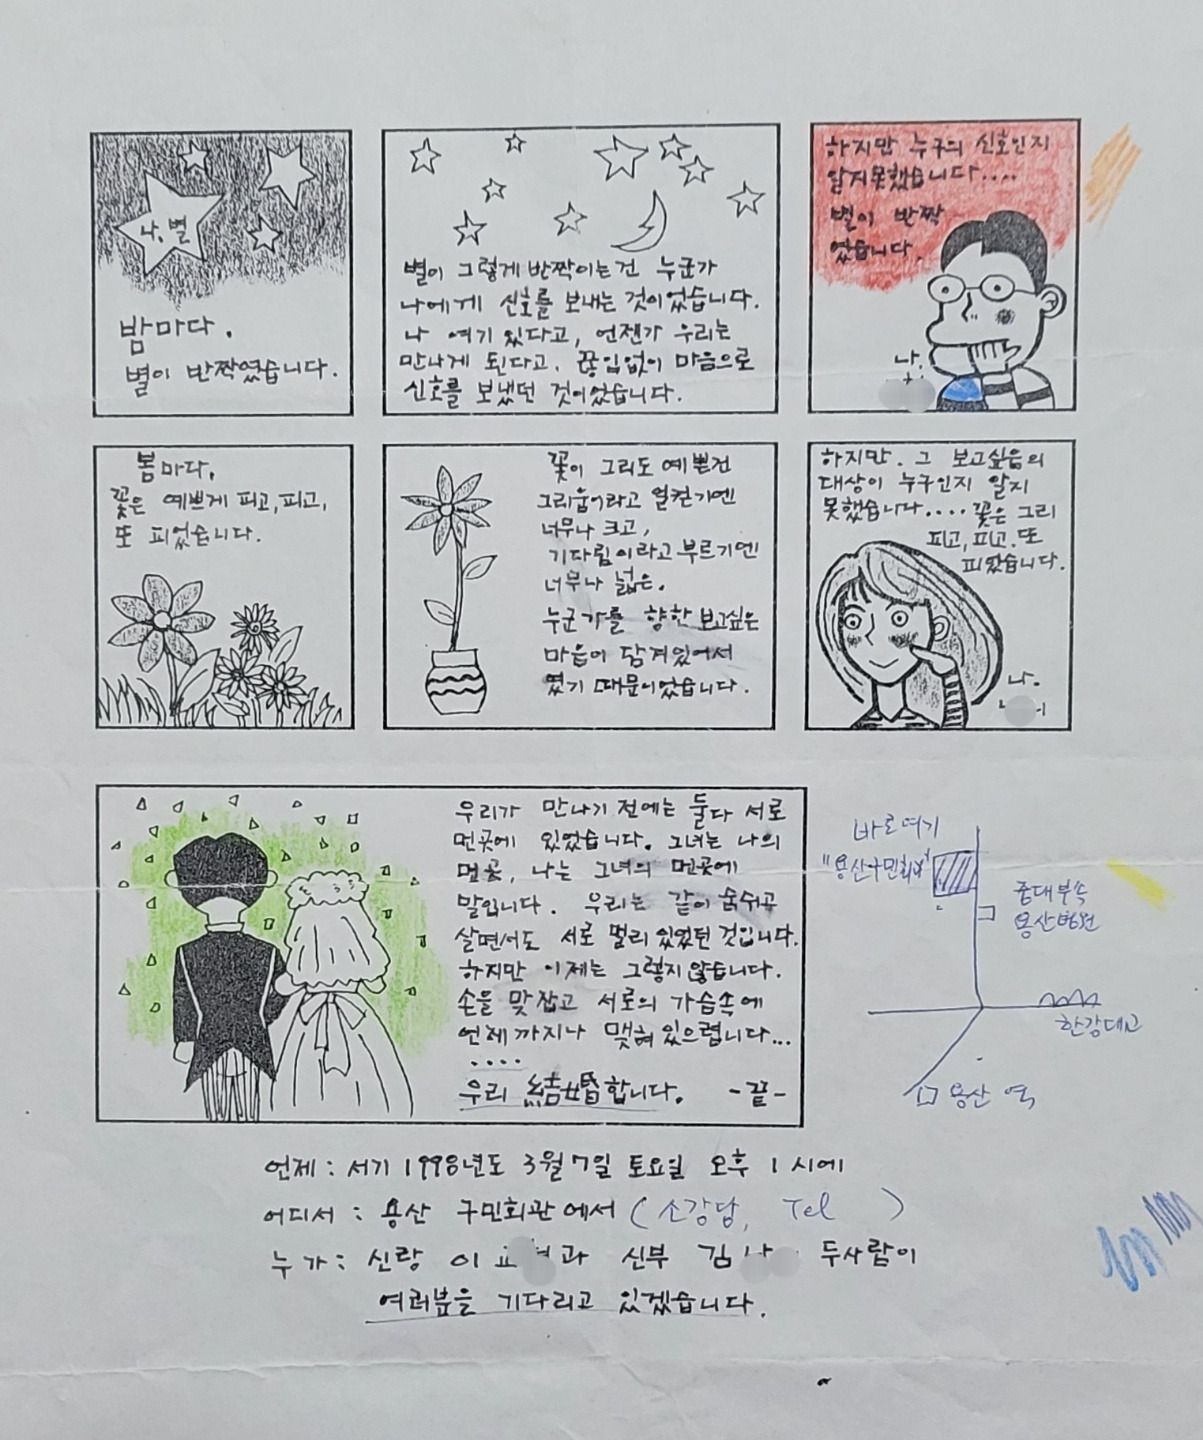 나, 별
밤마다.
별이 반짝였습니다.
별이 그렇게 반짝이는건 누군가
나에게 신호를 보내는 것이었습니다.
나 여기 있다고, 언젠가 우리는
만나게 된다고. 끊임없이 마음으로
신호를 보냈던 것이었습니다.
하지만 누구의 신호인지
알지못했습니다....
별이 반짝
였습니다.
나.
봄마다,
꽃은 예쁘게 피고, 피고,
또 피었습니다.
꽃이 그리도 예쁜건
그리움이라고 일컫기엔
너무나 크고,
기다림이라고 부르기엔
너무나 넓은.
누군가를 향한 보고싶은
마음이 담겨있어서
였기 때문이었습니다.
하지만. 그 보고싶음의
대상이 누구인지 알지
못했습니다.... 꽃은 그리
피고, 피고. 또
피었습니다.
나.
우리가 만나기 전에는 둘다 서로
먼곳에 있었습니다. 그녀는 나의
먼곳, 나는 그녀의 먼곳에
말입니다. 우리는 같이 숨쉬고
살면서도 서로 멀리 있었던 것입니다.
하지만 이제는 그렇지 않습니다.
손을 맞잡고 서로의 가슴속에
언제까지나 맺혀 있으렵니다...
....
우리 結婚합니다. -끝-
바로여기
"용산구민회관"
중대부속
용산병원
한강대교
용산 역
언제: 서기 1998년도 3월 7일 토요일 오후 1시에
어디서: 용산 구민회관에서 (소강당, Tel )
누가: 신랑 이 과 신부 김나 두사람이
여러분을 기다리고 있겠습니다.